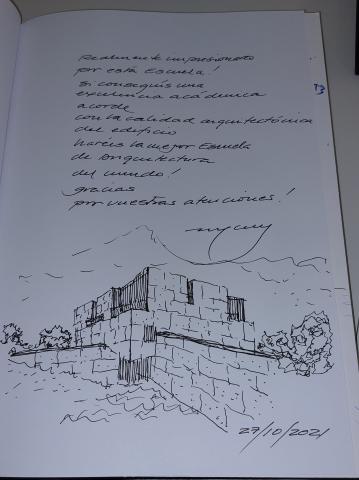 Realmente impresionado
por esta Escuela!
Si conseguís una
excelencia académica
acorde
con la calidad arquitectónica
del edificio
haréis la mejor Escuela
de Arquitectura
del mundo!
gracias
por vuestras atenciones!
27/10/2021